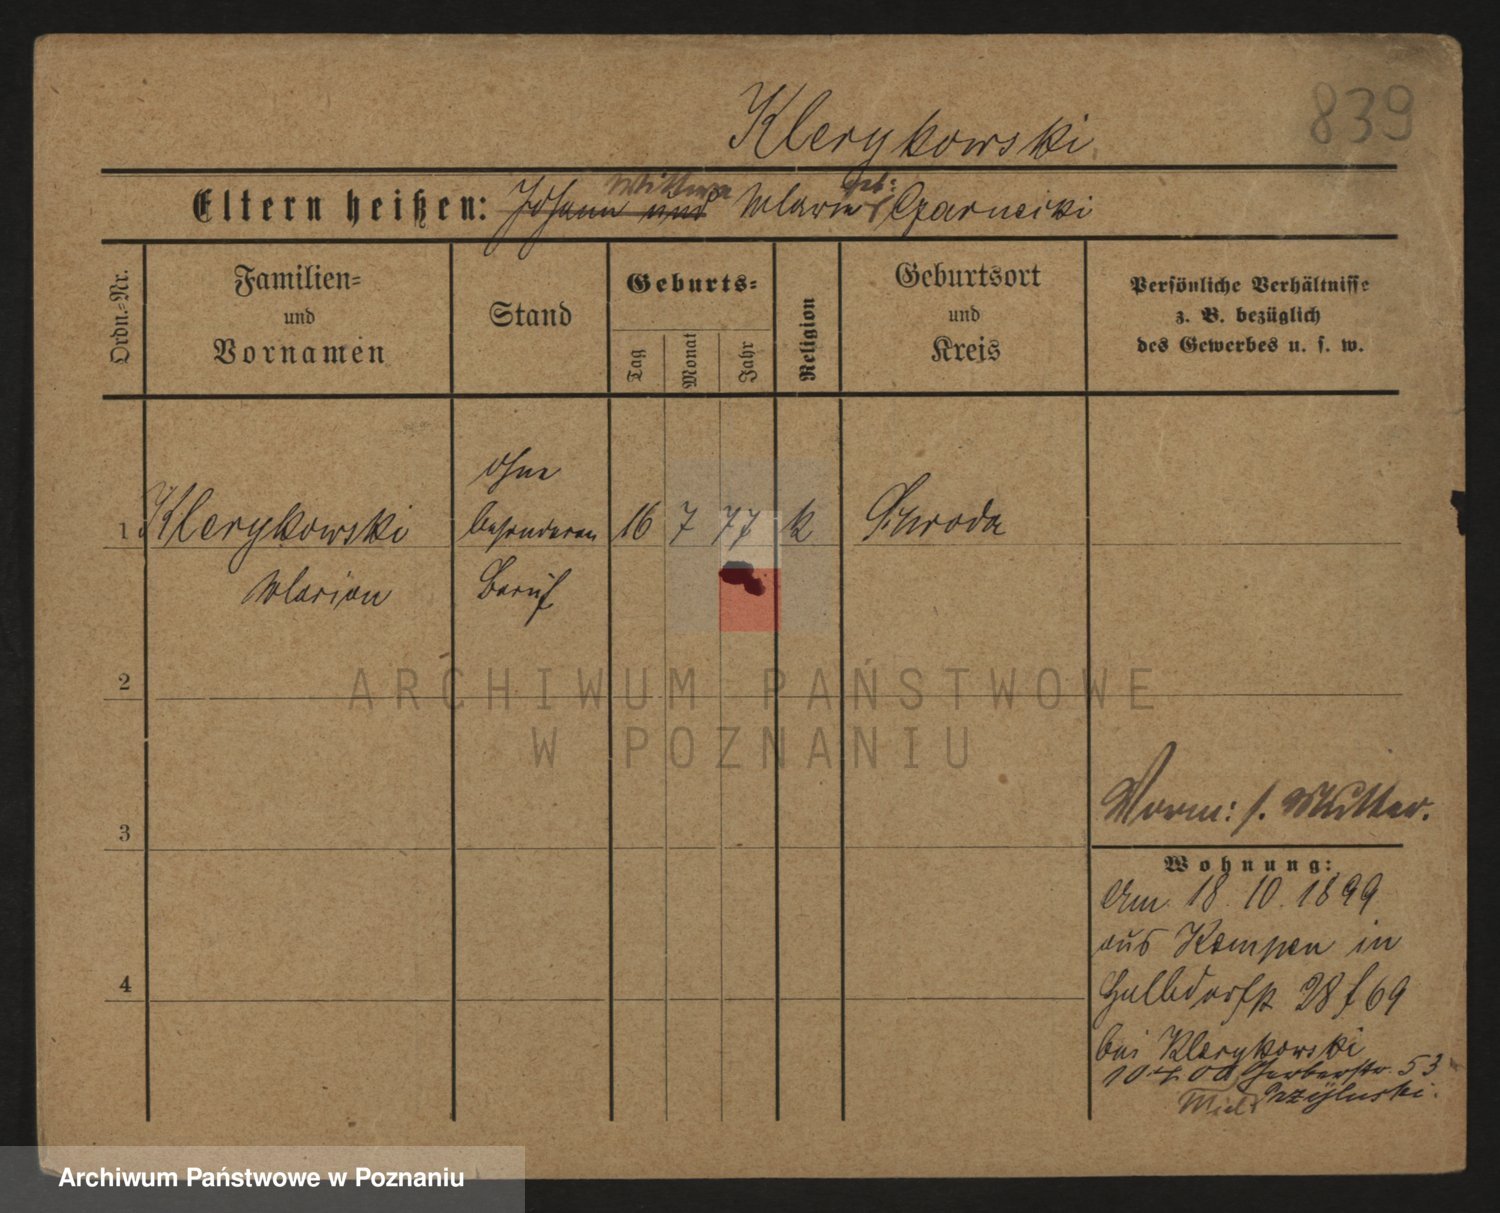 839
Klerykowski
Wittwe geb:
Eltern heißen: Johann und Marie Czarnecki
Ordn.-Nr.
Familien-
und
Vornamen
Stand
Geburts-
Tag
Monat
Jahr
Religion
Geburtsort
und
Kreis
Persönliche Verhältnisse
z. B. bezüglich
des Gewerbes u. s. w.
ohne
1 Klerykowski besonderen 16 7 77 k Schroda
Marian Beruf
2
ARCHIWUM PAŃSTWOWE
W POZNANIU
3
Vorm: s. Mutter.
Wohnung:
Am 18. 10. 1899
aus Kempen in
Halbdorfst 28 f 69
bei Klerykowski
10 4 00 Gerberstr. 53
4
Archiwum Państwowe w Poznaniu